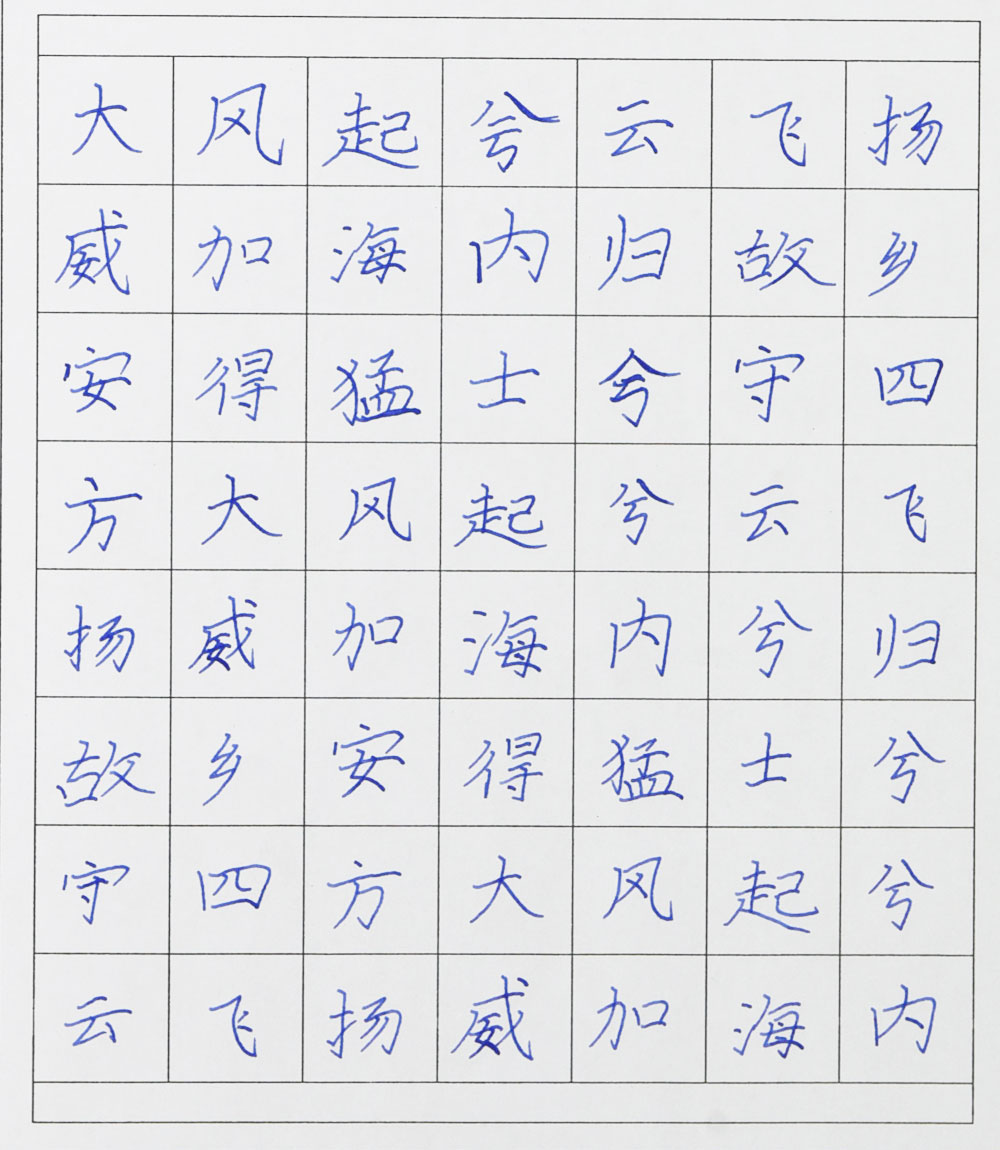 大风起兮云飞扬
威加海内归故乡
安得猛士兮守四
方大风起兮云飞
扬威加海内兮归
故乡安得猛士兮
守四方大风起兮
云飞扬威加海内